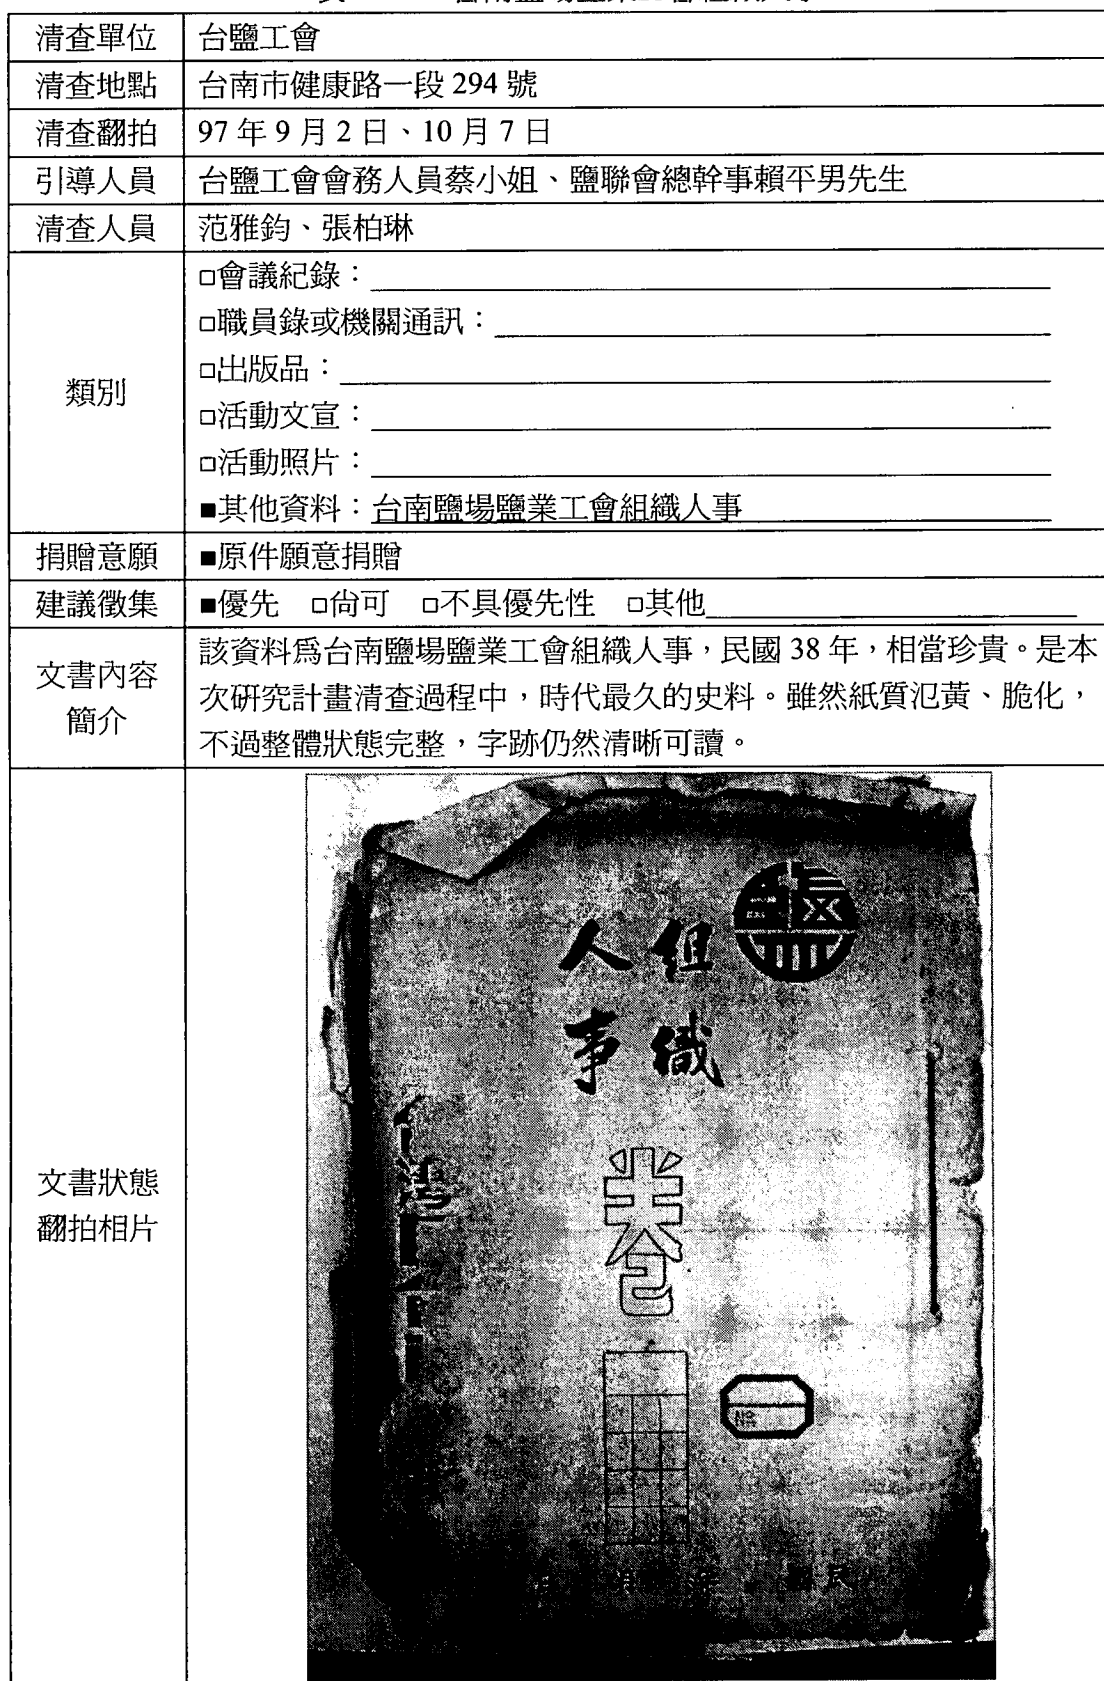 清查單位 台鹽工會
清查地點 台南市健康路一段 294 號
清查翻拍 97 年 9 月 2 日、10 月 7 日
引導人員 台鹽工會會務人員蔡小姐、鹽聯會總幹事賴平男先生
清查人員 范雅鈞、張柏琳
類別
□會議紀錄：
□職員錄或機關通訊：
□出版品：
□活動文宣：
□活動照片：
■其他資料：台南鹽場鹽業工會組織人事
捐贈意願 ■原件願意捐贈
建議徵集 ■優先 □尚可 □不具優先性 □其他
文書內容
簡介
該資料爲台南鹽場鹽業工會組織人事，民國 38 年，相當珍貴。是本
次研究計畫清查過程中，時代最久的史料。雖然紙質氾黃、脆化，
不過整體狀態完整，字跡仍然清晰可讀。
文書狀態
翻拍相片
鹽
組織
人事
卷